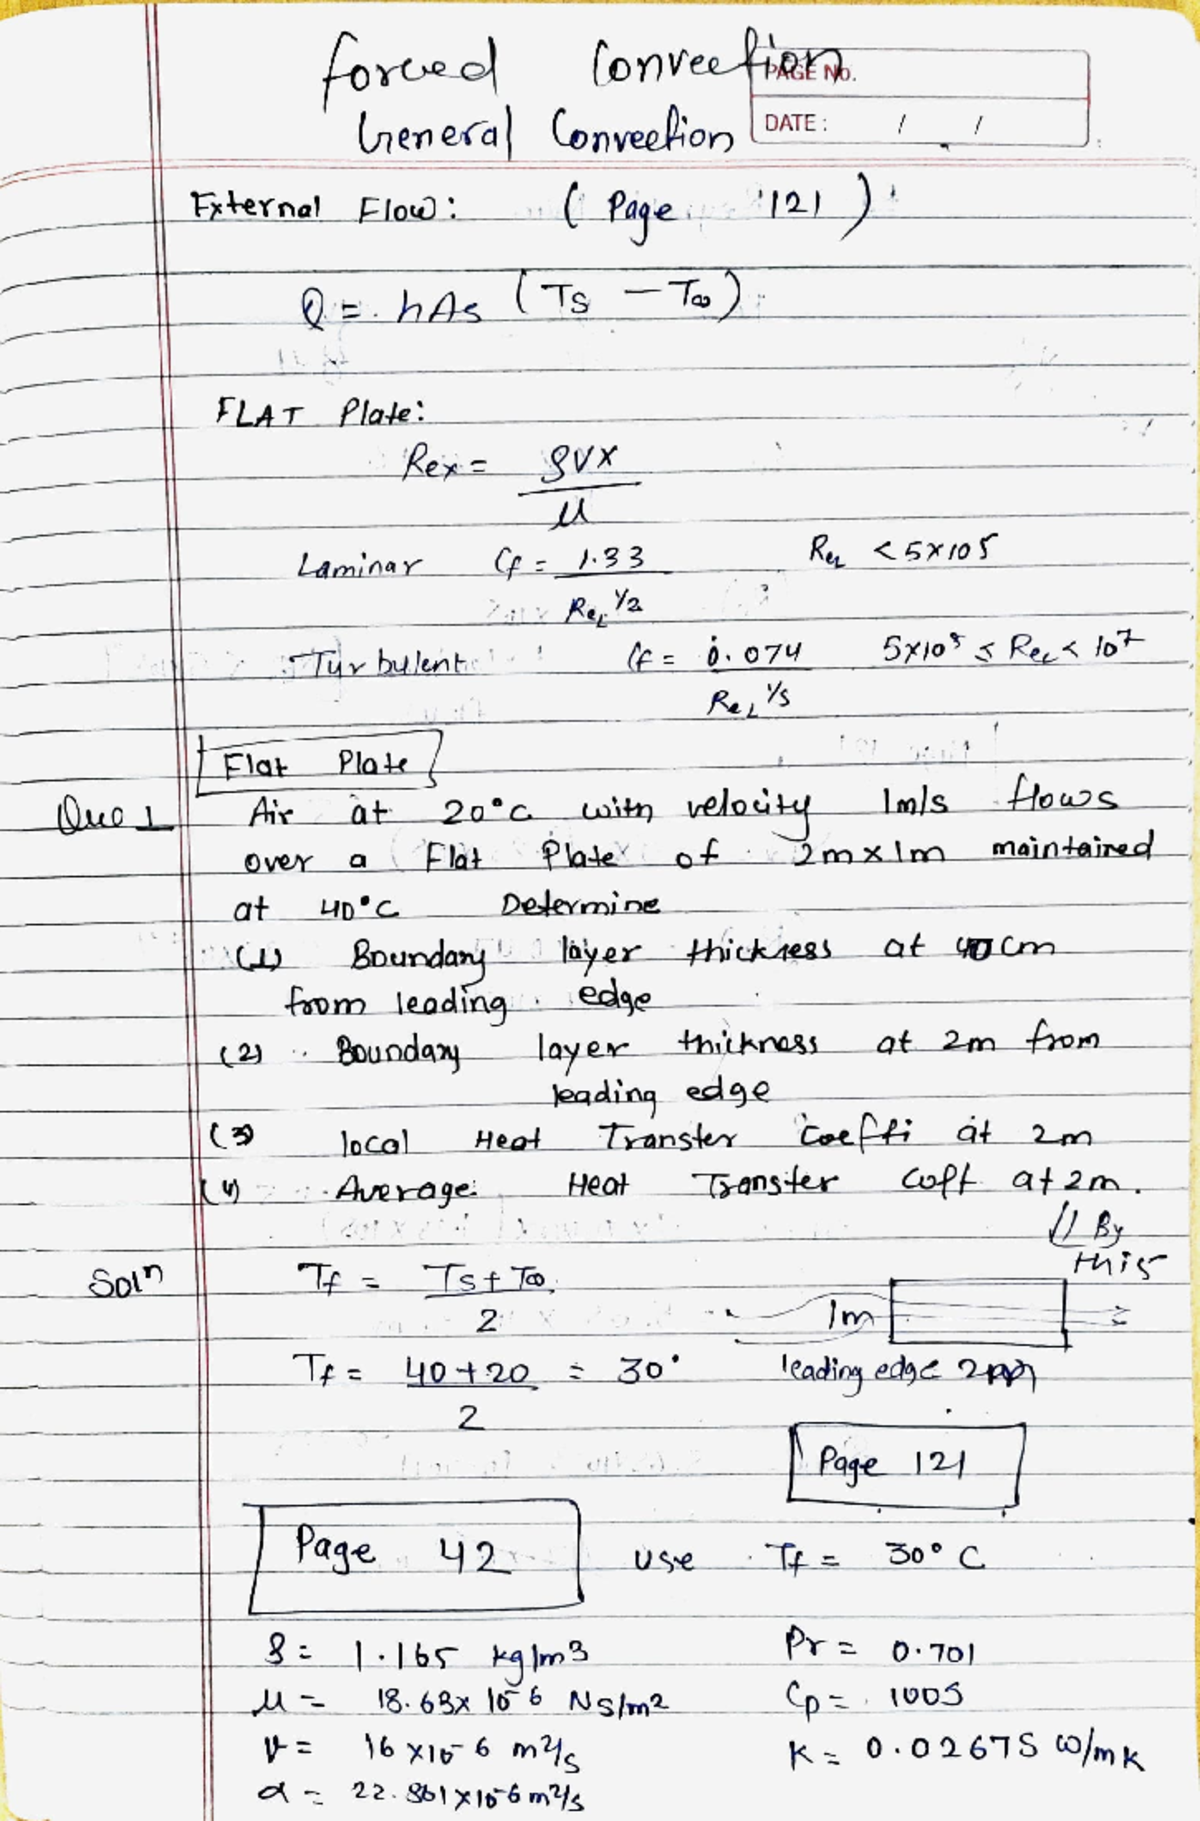 forced Convection
PAGE No.
General Convection
DATE: / /
External Flow: (Page 121)
Q = hAs (Ts - T∞)
FLAT Plate:
Rex = ρVx
μ
Laminar Cf = 1.33 ReL < 5×105
ReL 1/2
Turbulent Cf = 0.074 5×105 ≤ ReL < 10^7
ReL 1/5
Flat Plate
Que 1 Air at 20°C with velocity 1m/s flows
over a Flat Plate of 2m×1m maintained
at 40°C Determine
(1) Boundary layer thickness at 40cm
from leading edge
(2) Boundary layer thickness at 2m from
leading edge
(3) local Heat Transfer coeffi at 2m
(4) Average Heat Transfer Coft at 2m.
// By
this
Soln Tf = Ts + T∞
2
1m
Tf = 40+20 = 30°
2
leading edge 2m
Page 121
Page 42 use Tf = 30°C
ρ = 1.165 kg/m3 Pr = 0.701
μ = 18.63×10-6 Ns/m2 Cp = 1005
ν = 16×10-6 m2/s K = 0.02675 W/mK
α = 22.861×10-6 m2/s